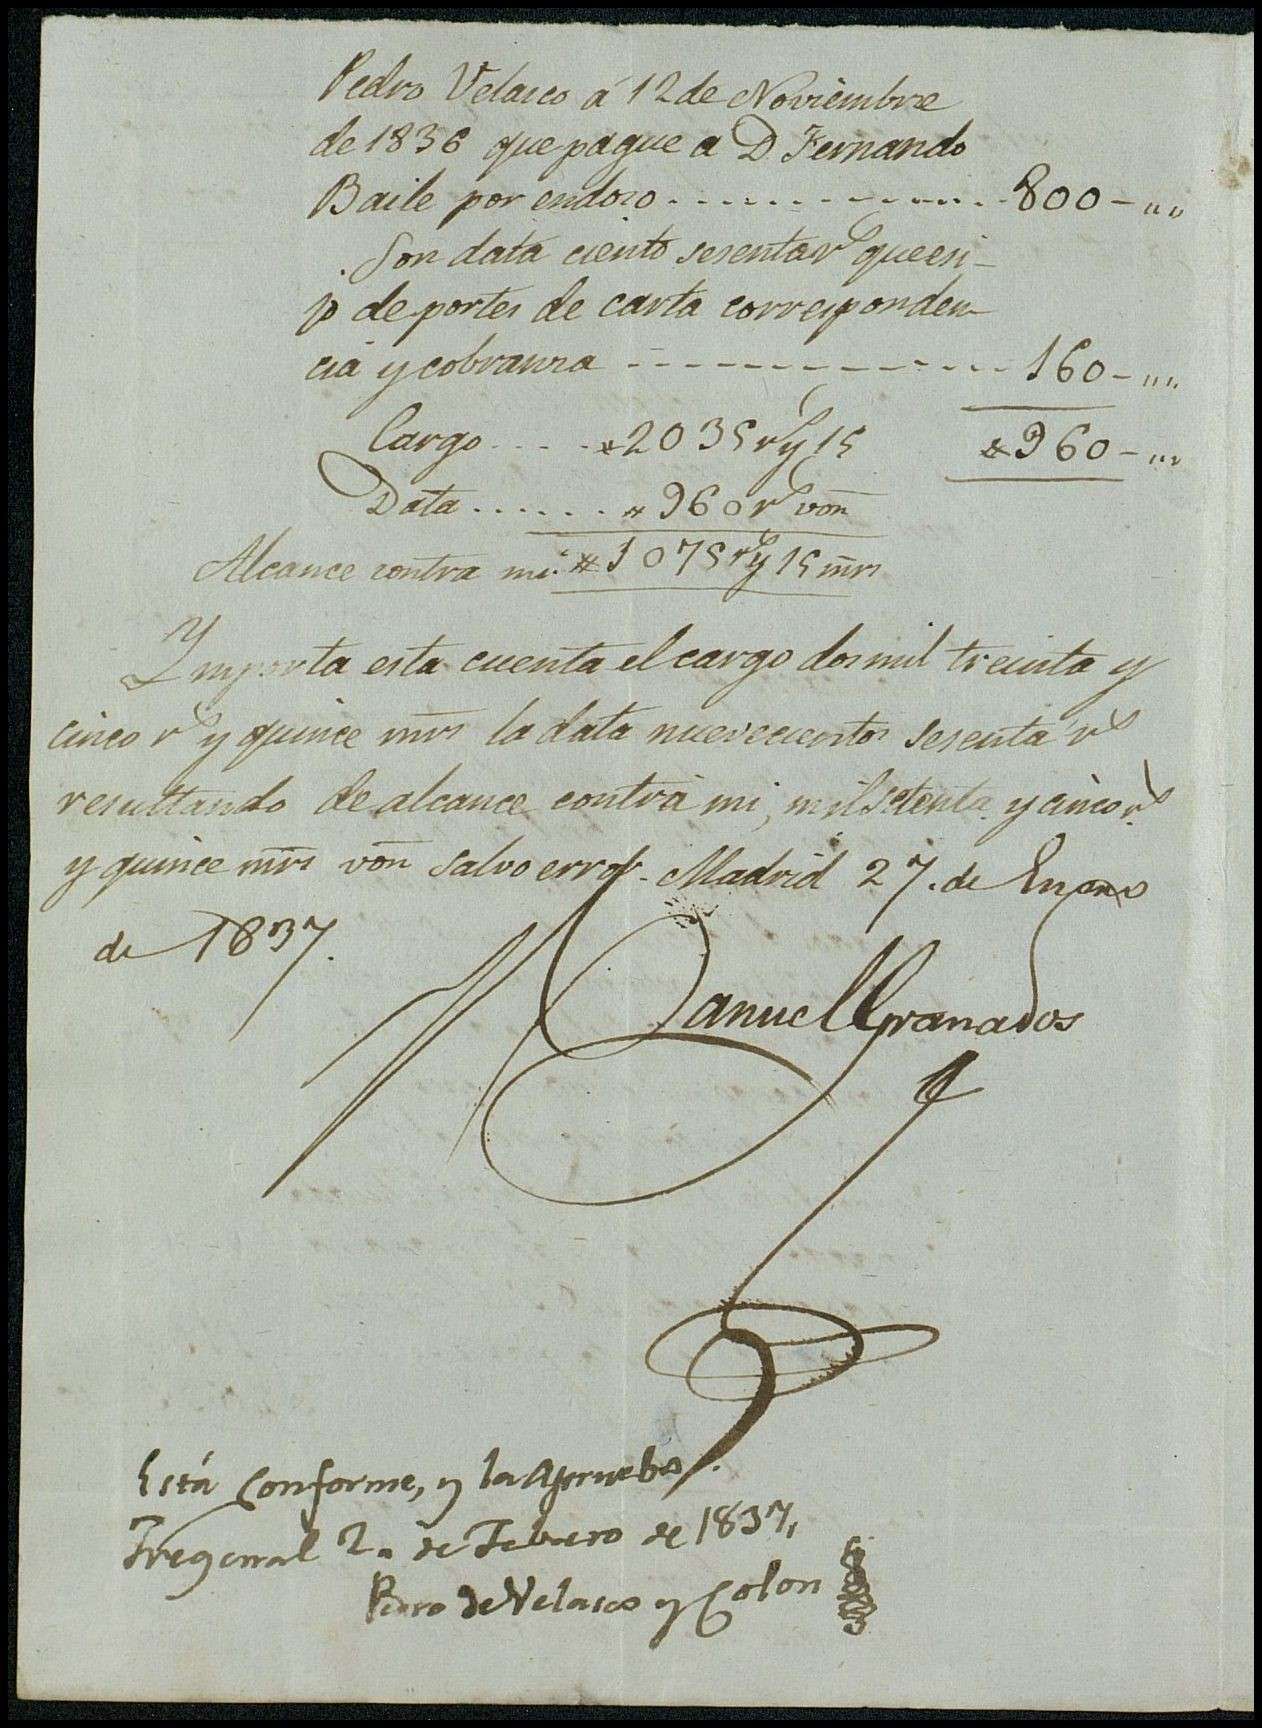 Pedro Velasco á 12 de Noviembre
de 1836 que pague a D Fernando
Baile por endoso ............. 800 - „„
Son data ciento sesenta rˢ que
de portes de carta corresponden
cia y cobranza ------------ 160 - „„
Cargo ..... #2035 rˢ y 15 #960 - „„
Data ...... #960 rˢ von
Alcance contra mi. #1075 rˢ y 15 mrs
Ymporta esta cuenta el cargo dos mil treinta y
cinco rˢ y quince mrs la data nuevecientos sesenta rˢ
resultando de alcance contra mi, mil setenta y cinco rˢ
y quince mrs von salvo error. Madrid 27. de Enero
de 1837.
Manuel Granados
Está Conforme, y la Apruebo.
Fregenal 2. de Febrero de 1837,
Pedro de Velasco y Colon